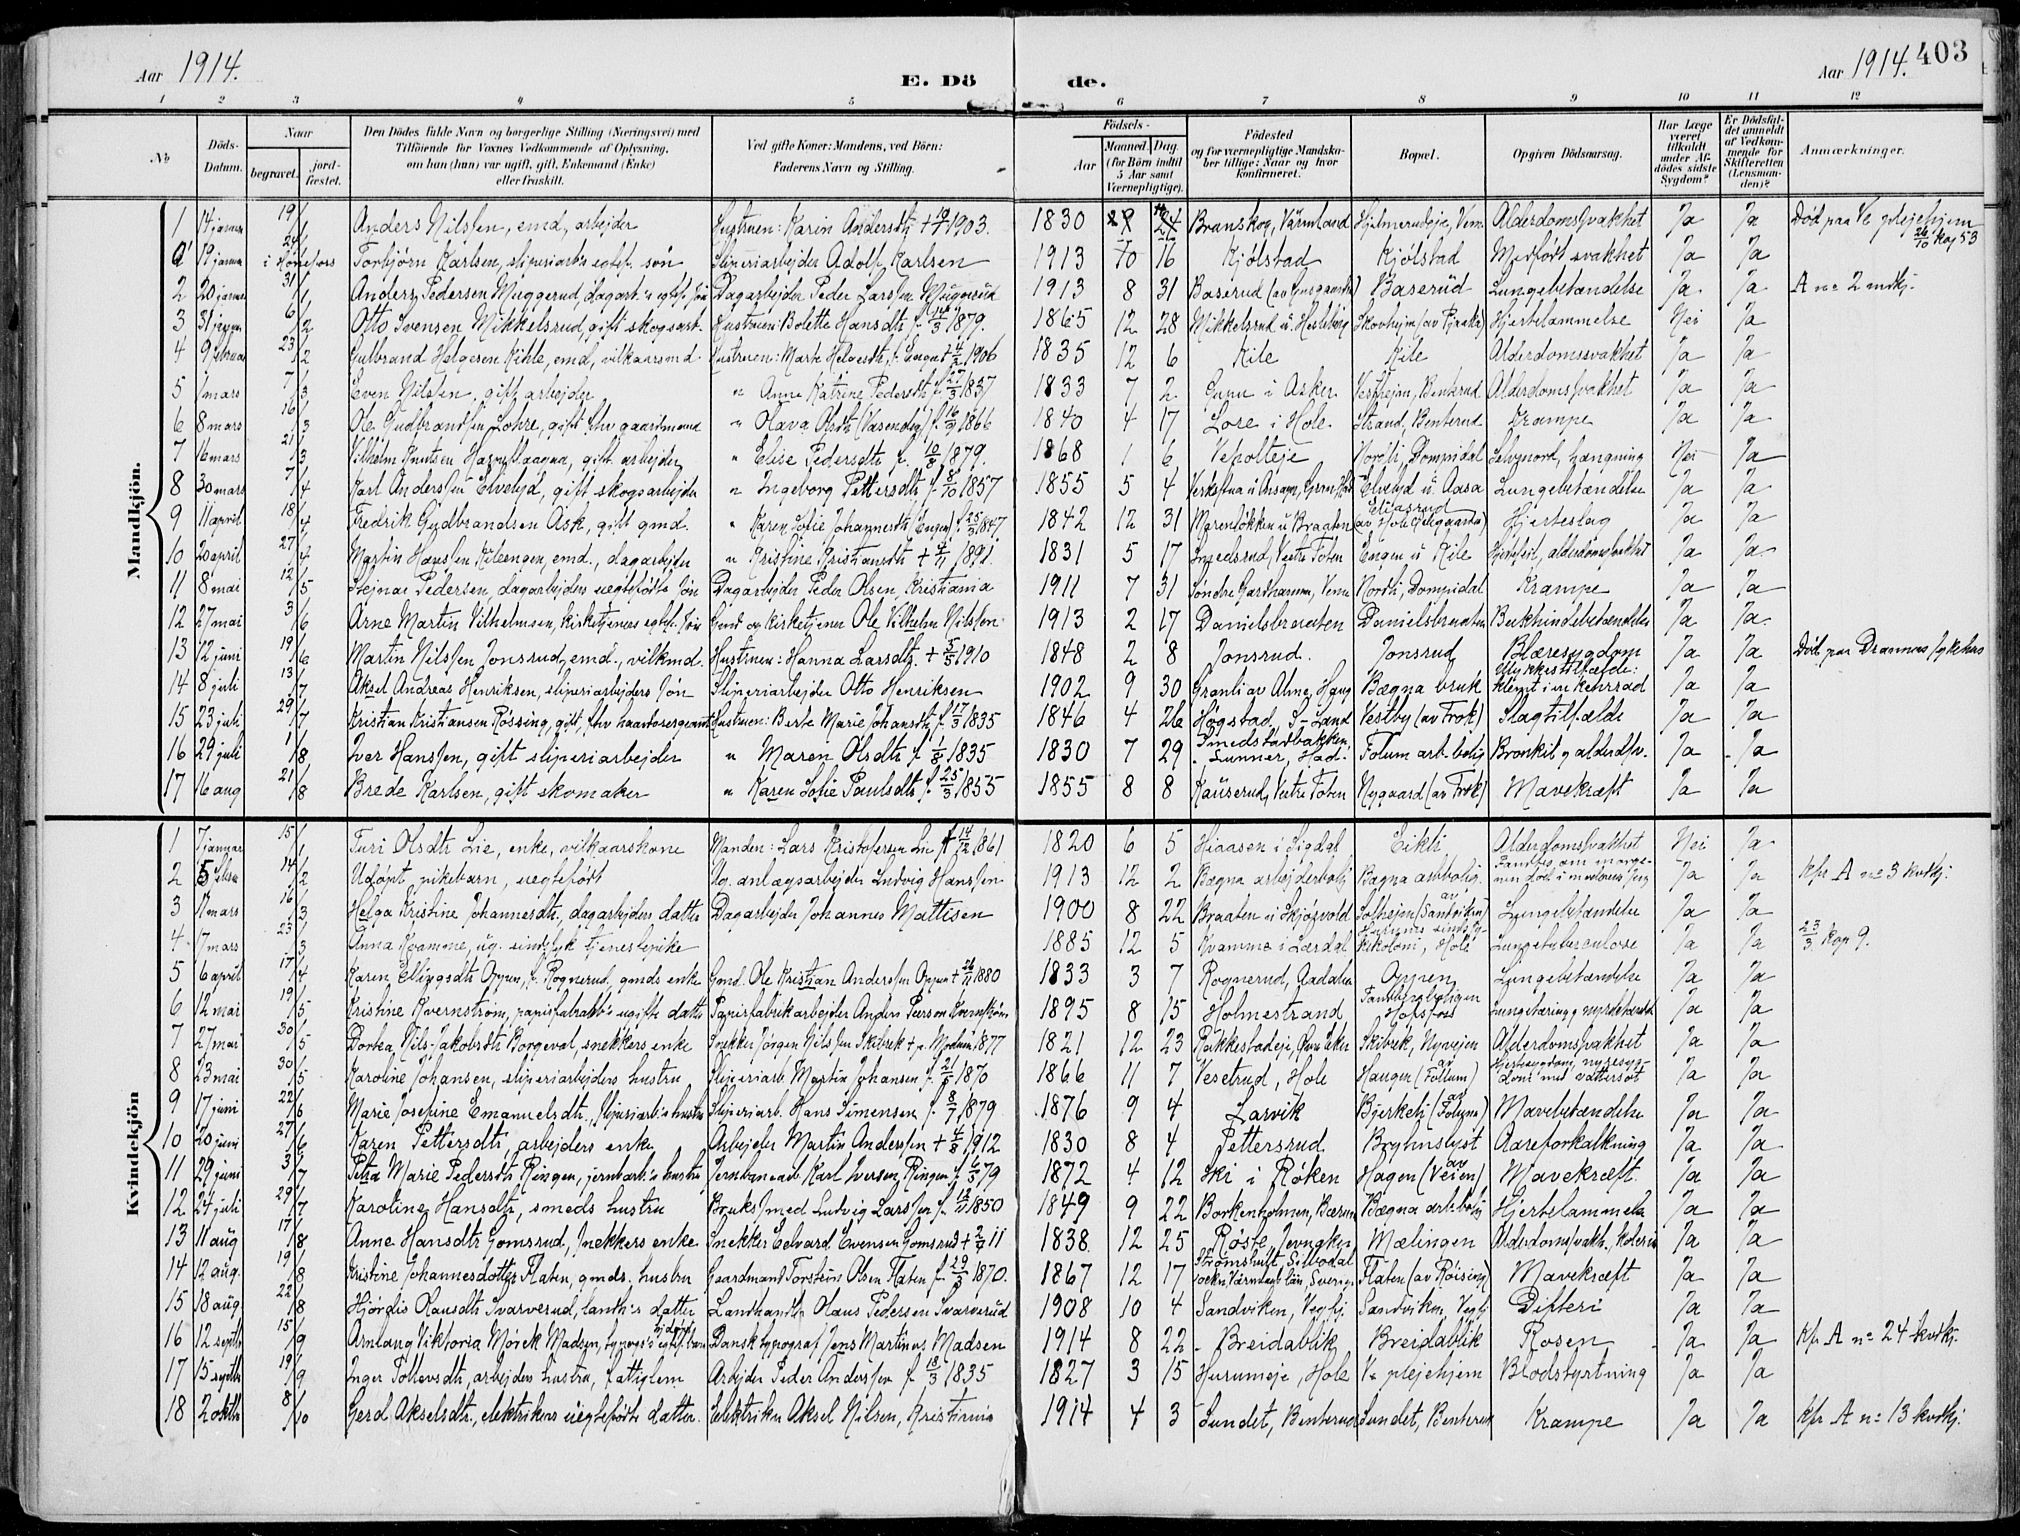 Aar 1914. E. Dö de. Aar 1914. 403
1 2 3 4 5 6 7 8 9 10 11 12
No Döds-Datum. Naar begravet. jordfæstet. Den Dödes fulde Navn og borgerlige Stilling (Næringsvei) med Tilföiende for Voxnes Vedkommende af Oplysning, om han (hun) var ugift, gift, Enkemand (Enke) eller fraskilt. Ved gifte Koner: Mandens, ved Börn: Faderens Navn og Stilling. Födsels- Aar Maaned. Dag. (for Börn indtil 5 Aar samt Værnepligtige). Födested og for værnepligtige Mandskaber tillige: Naar og hvor Konfirmeret. Bopæl. Opgiven Dödsaarsag. Har Læge været tilkaldt under Afdödes sidste Sygdom? Er Dödsfaldet anmeldt af Vedkommende for Skifteretten (Lensmanden)? Anmærkninger.
Mandkjön.
1 14 januar 19/1 Anders Nilssen, emd, arbejder Hustruen: Karin Andersdtr. + 1903. 1830 Branskog, Värmland Alderdomssvakhet Ja Ja Død paa plejehjem
19 januar i Hønefoss Torbjørn Karlsen, sliperiarb's egtef. søn Sliperiarbejder Adolf Karlsen 1913 10 16 Kjølstad Kjølstad Medført svakhet Ja Ja
2 20 januar 31/1 Anders Pedersen Muggerud, dagarb.'s egtef. søn Dagarbejder Peder Larssen Muggerud 1913 8 31 Baserud Baserud Lungebetændelse Ja Ja A no 2 mdkj.
3 31 januar 6/2 Otto Svensen Mikkelsrud, gift skogsarb. Hustruen: Bolette Hansdtr. f. 14/3 1879. 1865 12 28 Mikkelsrud Skovheim Hjertelammelse Nei Ja
4 9 februar 23/2 Gulbrand Helgesen Kihle, emd, vilkaarsmd. Hustruen: Marte Helgesdtr, 1906 1835 12 6 Kile Kile Alderdomssvakhet Ja Ja
5 1 mars 7/3 Even Nilssen, gift arbejder " Anne Katrine Pedersdtr f. 1837 1833 7 2 i Asker Vestheim, Benterud Alderdomssvakhet Ja Ja
6 8 mars 16/3 Ole Gudbrandsen Lohre, gift fhv gaardmand " Olava Olsdtr f. 1866 1840 4 17 Lore i Hole. Strand, Benterud Krampe Ja Ja
7 16 mars 21/3 Vilhelm Knutsen gift arbejder " Elise Pedersdtr f. 10/3 1879. 1868 1 6 Veholteje Nordli, Dompidal Selvmord, hængning Nei Ja
8 30 mars 7/4 Karl Anderssen Elvelyd, gift skogsarbejder " Ingeborg Pettersdtr f. 8/10 1857 1855 5 4 Elvelyd u. Aasa Lungebetændelse Ja Ja
9 11 april 18/4 Fredrik Gudbrandsen Ask, gift gmd. " Karen Sofie Johannesdtr (Engen) f. 25/3 1847. 1842 12 31 Marenløkken u Braaten Eliasrud Hjerteslag Ja Ja
10 20 april 27/4 Martin Hanssen Kileengen, emd., dagarbejder " Kristine Kristiansdtr + 1891. 1831 5 17 Smedsrud, Vestre Toten Engen u Kile Hjertefeil, alderdomssvakhet Ja Ja
11 8 mai 12/5 Pedersen, dagarbejders uegtefødte søn Dagarbejder Peder Olsen, Kristiania 1911 7 31 Nordli, Dompidal Krampe Ja Ja
12 27 mai 3/6 Arne Martin Vilhelmsen, Kirketjeners egtef. søn Gmd og kirketjener Ole Vilhelm Nilssen 1913 2 17 Danielsbraaten Danielsbraaten Bukhindebetændelse Ja Ja.
13 12 juni 19/6 Martin Nilssen Jonsrud, emd., vilkmd. Hustruen: Hanna Larsdtr. + 5/5 1910 1848 2 8 Jonsrud. Jonsrud Blæresygdom Ja Ja Død paa Drammens sykehus
14 8 juli 13/7 Aksel Andreas Henriksen, sliperiarbejders søn Sliperiarbejder Otto Henriksen 1902 9 30 Granli av Alme, Haug Bægna bruk Ulykkestilfælde: klemt i en kjerrad Ja Ja
15 23 juli 29/7 Kristian Kristiansen Røssing, gift, fhv Hustruen: Berte Marie Johansdtr f. 17/3 1835 1846 4 26 Høgstad, S- Land Vestby (av Trok) Slagtilfælde Ja Ja
16 29 juli 1/8 Iver Hanssen, gift sliperiarbejder " Maren Olsdtr f. 1/8 1835 1830 7 29 Smedstadbakken, Lunner, Had. Folum arb. bolig Bronkit & alderdsv. Ja Ja
17 16 aug 21/8 Brede Karlsen, gift skomaker " Karen Sofie Paulsdtr f. 25/3 1855 1855 8 8 Kauserud, Vestre Toten Nygaard (av Trok) Mavekræft Ja Ja
Kvindekjön
1 7 januar 15/1 Turi Olsdtr Lie, enke, vilkaarskone Manden: Lars Kristofersen Lie 14/12 1861 1820 6 5 Hiaasen i Sigdal Eikli Alderdomssvakhet Nei Ja
2 5 14/2 Udøpt pikebarn, uegteført Ug. anlægsarbejder Ludvig Hanssen 1913 12 2 Bægna arbejderbolig Bægna arbbolig. Fandtes om morgenen død i moderens seng Ja Ja Kfr A no 3 kvdkj.
3 11 mars 16/3 Helga Kristine Johannesdtr, dagarbejders datter Dagarbejder Johannes Mattisen 1900 8 22 Braaten u Skjørvold Solhejm (av Sandviken) Lungebetændelse Ja Ja
4 17 mars 23/3 Anna Kvamme, ug. sindssyk tjenestepike 1885 12 5 Kvamme i Lærdal Hole Lungetuberculose Ja Ja 23/3 kap 9.
5 6 april 17/4 Karen Ellingsdtr Oppen, f. Rognerud, gmds enke Gmd. Ole Kristian Anderssen Oppen + 1880 1833 3 7 Rognerud, Aadalen Oppen Lungebetændelse Ja Ja
6 12 mai 19/5 Kristine Kvernstrøm, papirfabrarb's ugifte datter Papirfabrikarbejder Anders Person Kvernstrøm 1895 8 15 Holmestrand Fandbergboligen Hofsfoss Ja Ja
7 27 mai 30/5 Dortea Nils-Jakobsdtr Borgeval, snekkers enke Snekker Jørgen Nilssen Skibrek + p. Modum 1877 1821 12 23 Skibrek, Nyvejen Alderdomssvakhet Ja Ja
8 23 mai 30/5 Karoline Johansen, sliperiarbejders hustru Sliperiarb. Martin Johansen f. 1870 1866 11 7 Vesetrud, Hole Haugen (av Follum) Hjertesygdom, nyresygdom med vattersot Ja Ja
9 17 juni 22/6 Marie Josefine Emanuelsdtr, sliperiarb's hustru Sliperiarb. Hans Simensen f. 8/7 1879 1876 9 4 Larvik Bjerkeli Mavebetændelse Ja Ja
10 20 juni 27/6 Karen Pettersdtr, arbejders enke Arbejder Martin Anderssen + 4/8 1912 1830 8 4 Pettersrud Bryhnslyst Aareforkalkning Ja Ja
11 29 juni 3/7 Petra Marie Pedersdtr Ringen, jernbarb's hustru Jernbanearb Karl Iversen Ringen f. 79 1872 4 12 Ski i Røken Hagen (av Veien) Mavekræft. Ja Ja
12 24 juli 29/7 Karoline Hansdtr, smeds hustru Bruksmed Ludvig Larssen f. 1850 1849 9 22 Borkenholmen, Bærum Bægna arb-bolig Hjertelammelse Ja Ja
13 11 aug 17/8 Anne Hansdtr Gomsrud, snekkers enke Snekker Edvard Evensen Gomsrud + 11 1838 12 25 Røste, Jevnaker Mælingen Alderdomssvakh., kolerin Ja Ja
14 12 aug. 19/8 Kristine Johannesdotter Flaten, gmds. hustru Gaardmand Torstein Olsen Flaten f. 29/3 1870. 1867 12 17 Silbodal socken, Värmlands län, Sverige Flaten (av Røising) Mavekræft Ja Ja
15 18 aug 22/8 Hjørdis Olausdtr Svarverud, landh's datter Landhandler Olaus Pedersen Svarverud 1908 10 4 Sandviken, Veglj. Sandviken, Veglj Difteri Ja Ja
16 12 septbr 15/9 Arnlaug Viktoria Mørck Madsen, typogr's egtef. barn Dansk typograf Jens Martinus Madsen 1914 8 22 Breidablik Breidablik Rosen Ja Ja Kfr A no 24 kvdkj.
17 15 septbr 19/9 Inger Tollevsdtr, arbejders hustru, fattiglem Arbejder Peder Anderssen f. 13/3 1835 1827 3 15 Hurumeje, Hole Vo plejehjem Blodstyrtning Ja Ja
18 2 oktbr 8/10 Gerd Akselsdtr, elektrikers uegtefødte datter. Elektriker Aksel Nilsen, Kristiania 1914 4 3 Sundet, Benterud Sundet, Benterud Krampe Ja Ja Kfr A no 13 kvdkj.